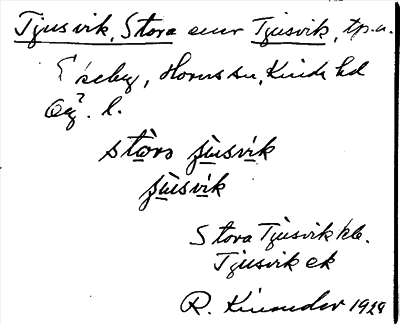 Tjusvik, Stora eller Tjusvik, tp.u.
Ekeby, Horns sn, Kinda hd
Ög. l.
stòra ʃùsvík
ʃùsvík
Stora Tjusvik kb.
Tjusvik ek
R. Kinander 1928